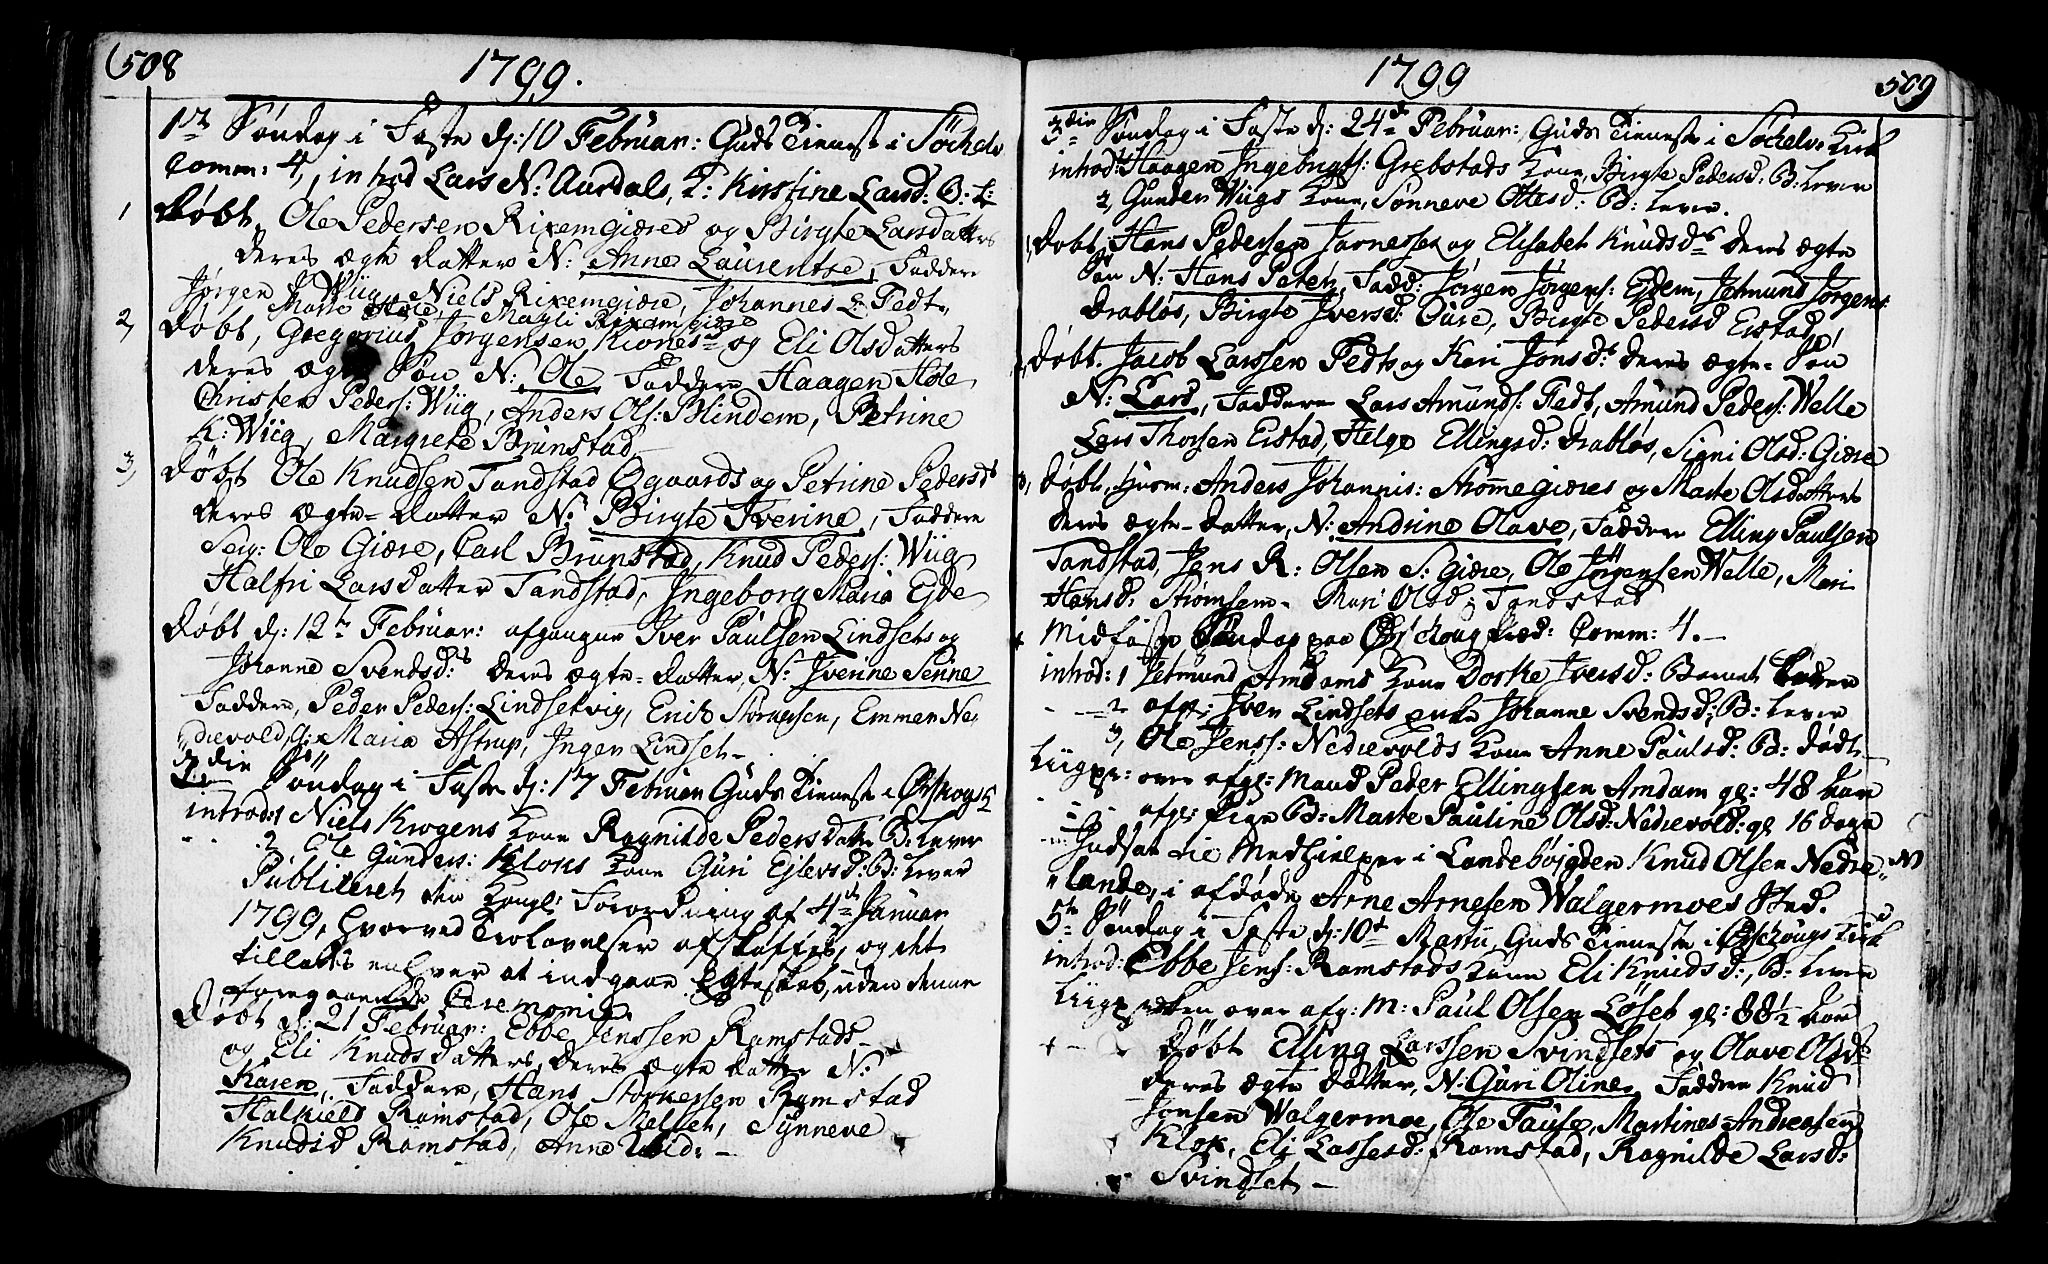 508
1799.
1ste Søndag i Faste d: 10 Februar: Guds Tieneste i Søchelv
Comm: 4, introd Lars N: Aurdals, K: Kirstine Larsd: B: L:
1 Døbt, Ole Pedersen Rixemgiæres og Birgte Larsdatters
deres ægte Datter N: Anne Laurentse, Faddere
Jørgen Wiig, Niels Rixemgiære, Johannes L: Fedt,
Marte Hole, Magli Rixemgiære
2, Døbt, Gregorius Jørgensen Kiones og Eli Olsdatters
deres ægte Søn N: Ole Faddere Haagen Hole
Christen Peders: Wiig, Anders Ols: Blindem, Petrine
K: Wiig, Margrete Brunstad
3, Døbt Ole Knudsen Tandstad Øgaards og Petrine Pedersd
deres ægte-Datter N: Birgte Iverine, Faddere
Serg: Ole Giære, Carl Brunstad, Knud Peders: Wiig
Halfri Larsdatter Tandstad, Ingeborg Maria Ejde
Døbt d: 12te Februar: afgangne Iver Paulsen Lindsets og
Johanne Svendsd: deres ægte-Datter, N: Iverine Serine
Faddere, Peder Peders: Lindsetvig, Erich Størapsen, Emmer Ne,,
drevold, G: Maria Astrup, Inger Lindset-
2den Søndag i Faste d: 17 Februar Guds Tieneste i Ørschogs K
introd: 1 Niels Krogens Kone Ragnilde Pedersdatter B: Lever
2 Ole Gunders: Kloks Kone Guri Ejlersd: B: Lever
Publiceret den Kongl: Forordning af 4de Januar
1799, hvorved Trolovelser afskaffes, og det
tillades enhver at indgaae Egteskab, uden denne
foregaaende Ceremonie.
Døbt d: 21 Februar: Ebbe Jenssen Ramstads
og Eli Knudsdatters, deres ægte Datter N:
Karen, Faddere, Hans Storkersen Ramstad
Halkield Ramstad, Ole Melset, Synneve
Knudsd Ramstad, Anne
1799
509
3die Søndag i Faste d: 24de Februar: Guds Tieneste i Søchelvs Kirk
introd: 1 Haagen Ingebrigts: Grebstads Kone, Birgte Pedersd: B: Lever
2, Gunder Wiigs Kone, Sønneve Ottesd: B: Lever.
1, Døbt Hans Pedersen Jarnesses og Elisabet Knudsdr deres ægte
Søn N: Hans Peter, Fadd: Jørgen Jørgens: Ejdem, Jetmund Jørgens:
Drabløs, Birgte Iversd: Øure, Birgte Pedersd Erstad
Døbt. Jacob Larssen Fedts og Kari Jonsdr deres ægte- Søn
N: Lars, Faddere Lars Amunds: Fedt, Amund Peders: Welle
Lars Thorsen Erstad, Helge Ellingsd: Drabløs, Signi Olsd: Giære
3, Døbt, hjem: Anders Johannis: Strømmegiæres og Marte Olsdatters
deres ægte-Datter, N: Andrine Olave, Faddere Elling Paulsen
Tandstad, Jens R: Olsen S: Giære, Ole Jørgensen Welle, Mari
Hansd: Strømsem- Mari Olsd: Tandstad
Midfaste Søndag paa Ørschoug Præd: Comm: 4.-
introd: 1 Jetmund Amdams Kone Dorte Iversd: Barnet Lever
2 afg: Iver Lindsets enke Johanne Svendsd: B: Lever
3, Ole Jenss: Nedrevolds Kone Anne Paulsd: B: død-
Liigpr: over afg: Mand Peder Ellingsen Amdam gl: 48 Aar
afg: Pige B: Marte Pauline Olsd: Nedrevold: gl 16 dage
Indsat til Medhielper i Landebøjgden Knud Olsen Nedre,,
,,lande, i afdøde Arne Arnesen Walgermoes Sted.
5te Søndag i Faste d: 10de Martii Guds Tieneste i Ørschougs Kirk
introd: Ebbe Jens: Ramstads Kone Eli Knudsd:, B: Lever
Liigprædken over afg: M: Paul Olsen Løset gl: 88½ Aar
Døbt Elling Larssen Svindsets og Olave Olsds
deres ægte Datter, N: Guri Oline, Faddere Knud
Jonsen Walgermoe, Ole Fause, Martines Andreasen
Klok, Eli Lassesd: Ramstad, Ragnilde Larsd:
Svindset-